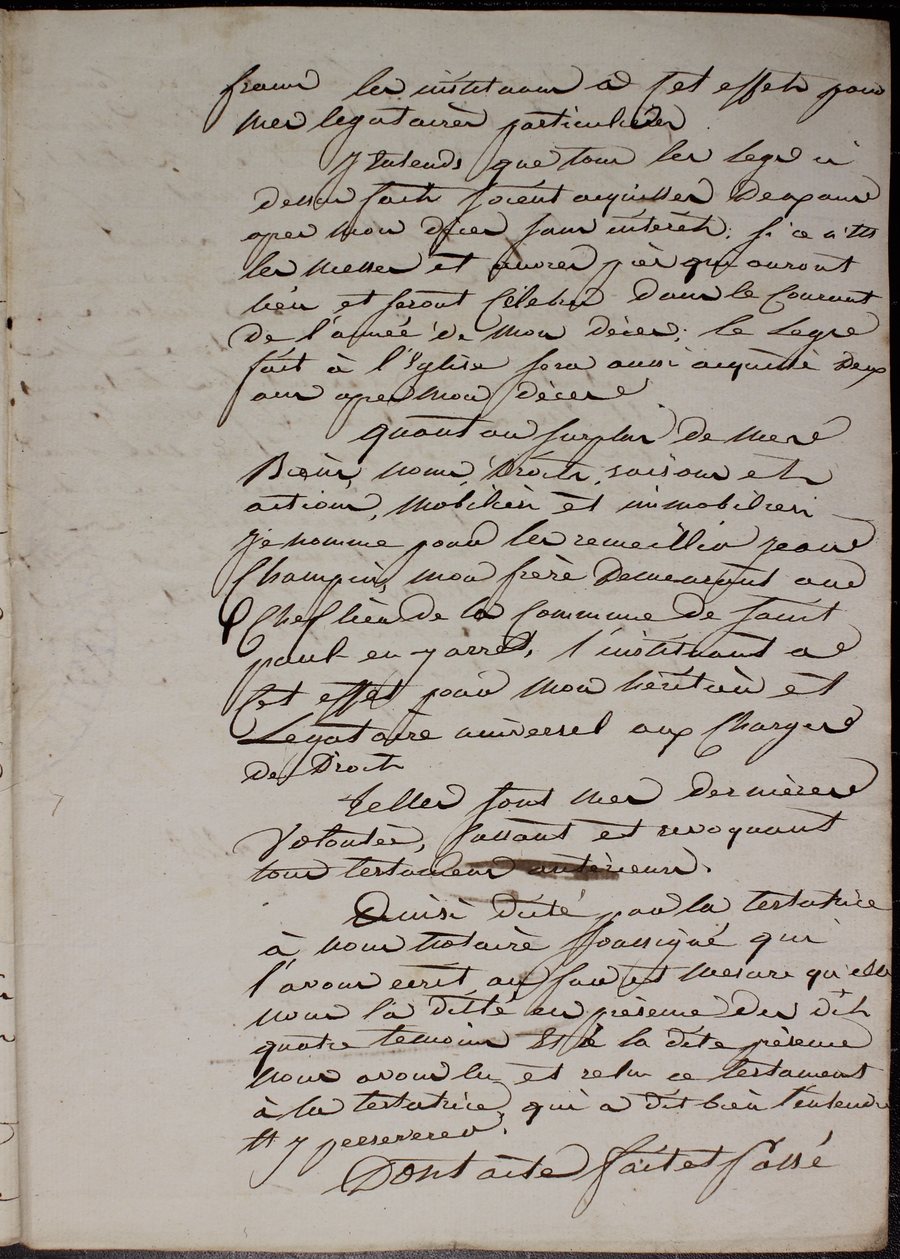 francs les instituans a cet effets pour
mes legataires particuliers
J'entends que tous les legs ci
dessus faits soient acquittés deux ans
apres mon déces sans intérêts. Si ce n'est
les messes et autres pies qui auront
lieu et seront Célébrés dans le Courant
de l'année de mon déces, le Legs
fait à l'Eglise sera aussi acquitté deux
ans apres mon déces
Quant au surplus de mes
Biens, noms, Droits, raisons et
actions, mobiliers et immobiliers
Je nomme pour les remeillir Jean
Champin, mon frère Demeurant au
Chef lieu de la Commune de saint
paul-en-jarret, l'instituant a
Cet effet pour mon héritier et
Legataire universel aux Charges
de Droits
Telles sont mes dernières
Volontés, Cassant et revoquant
tous testamens antérieurs.
Ainsi dicté par la testatrice
à nous Notaire Soussigné qui
l'avons ecrit au fur et Mesure qu'elle
nous l'a dicté en présence des dits
quatre temoins Et à la dite présence
nous avons lu et relu ce testament
à la testatrice, qui a dit bien l'entendre
et y perseverer.
Dont acte fait et Passé